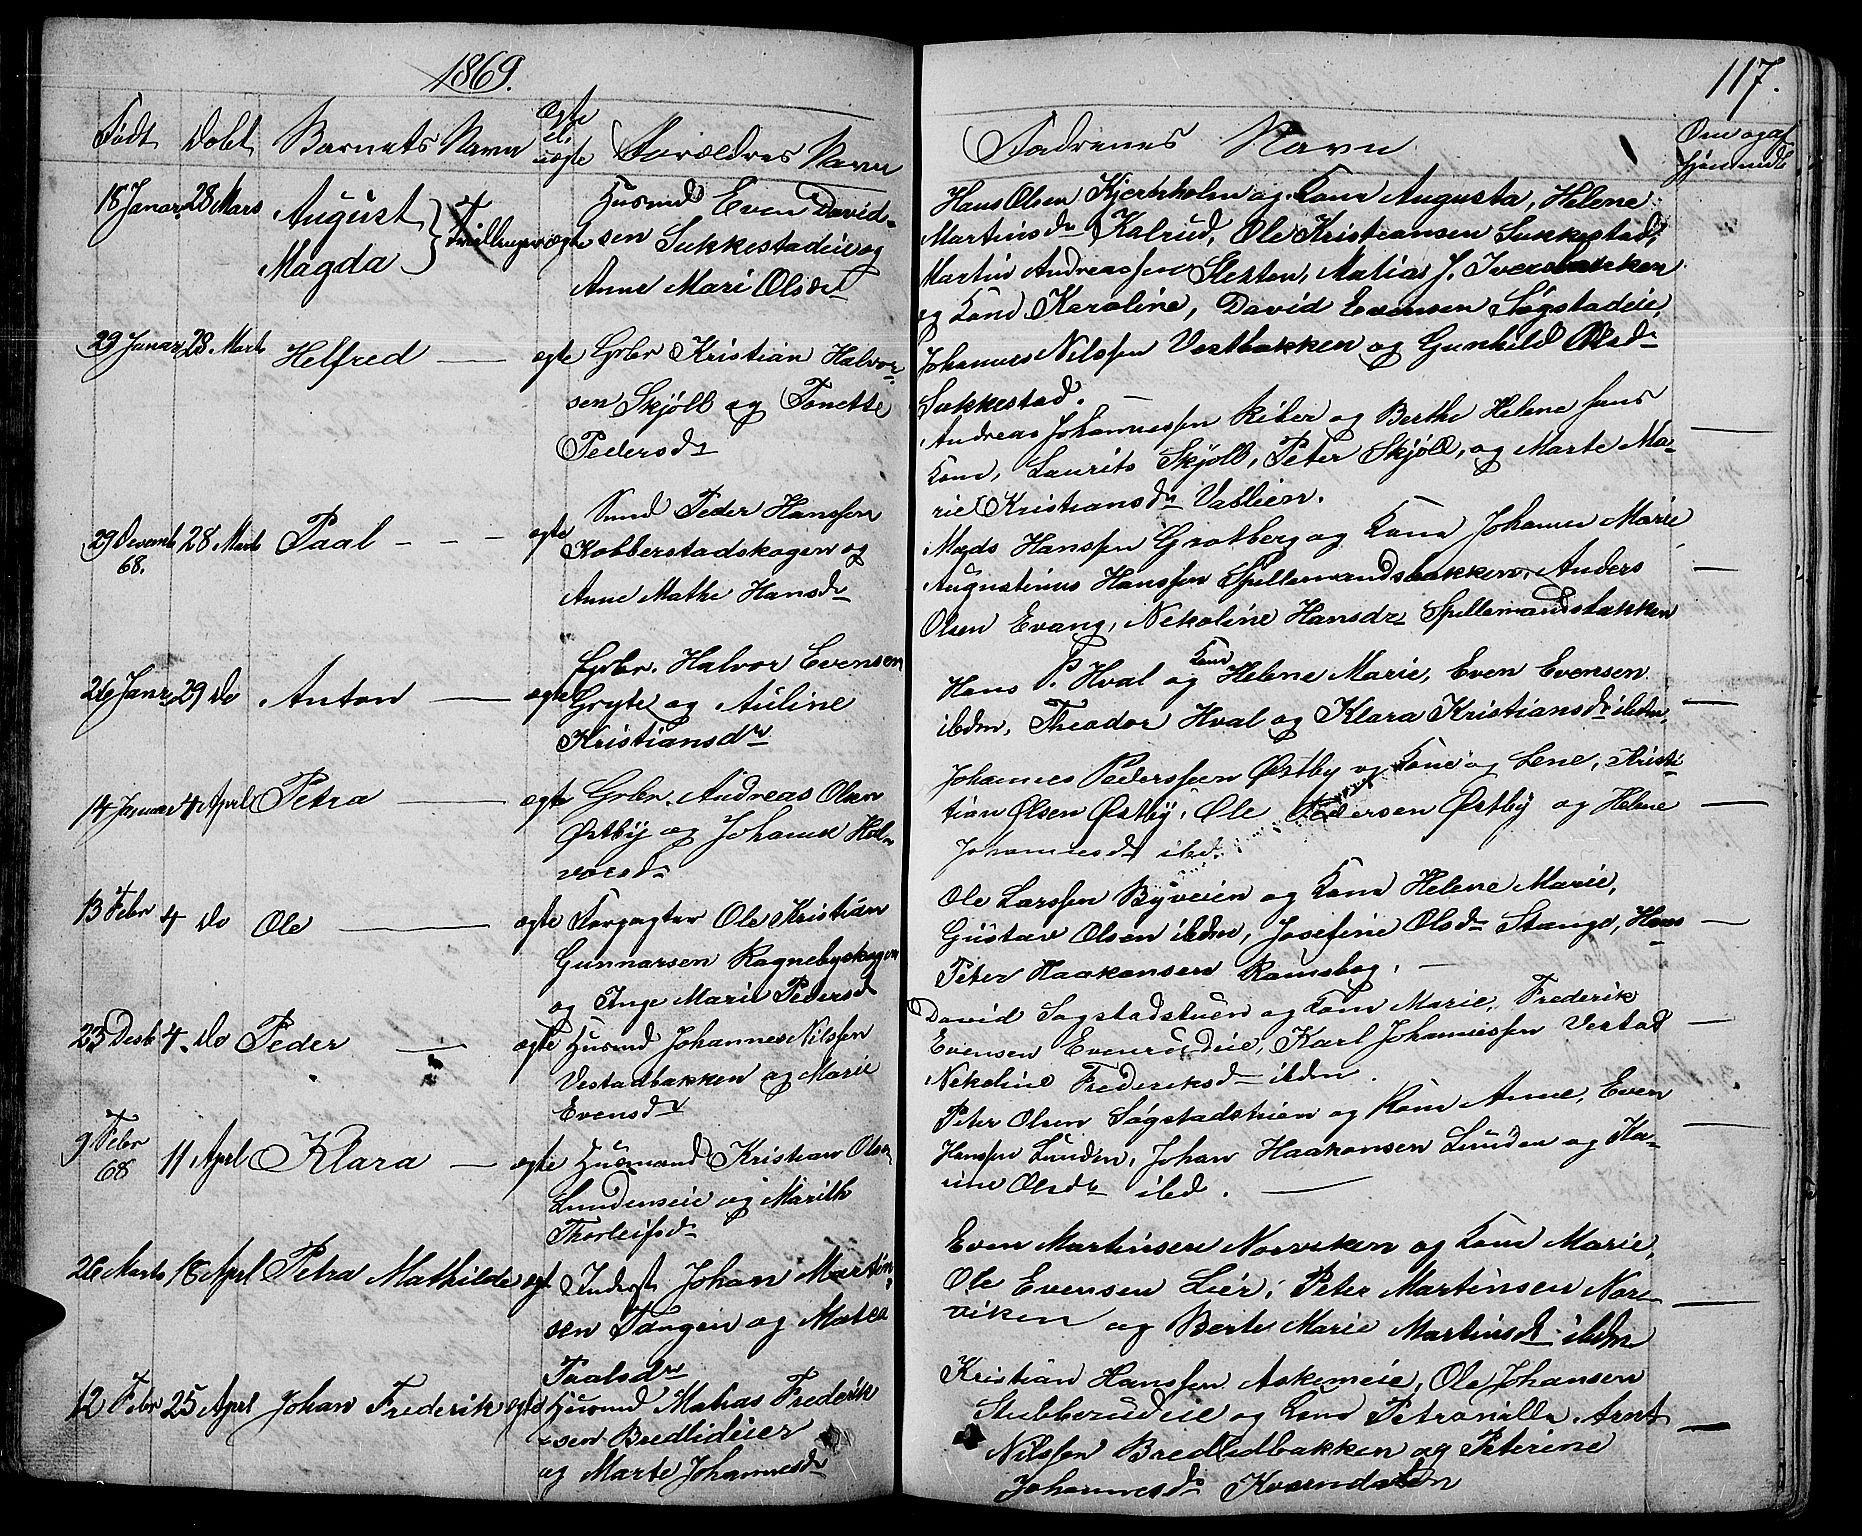 1869.
117.
Født Døbt Barnets Navn Ægte el. uægte Forældres Navn
Fadrenes Navn
Om og af
18 Januar 28 Mars August Magda } Tvillinger ægte Husmd Even David-
sen Sukkestadeie og
Anne Mari Olsdr
Hans Olsen Kjerkholm og Kone Augusta, Helene
Martinsdr Kalrud, Ole Kristiansen Sukkestad,
Martin Andreassen Sletten, Matias J. Iversbakken
og Kone Karoline, David Evensen Søgstadeie,
Johannes Nilssen Vestbakken og Gunhild Olsdr
Sukkestad.
29 Januar 28 Marts Helfred — ægte Grbr Kristian Halvor-
sen Skjøll og Tonette
Pedersdr
Andreas Johannessen Kiber og Berthe Helene hans
Kone, Laurits Skjøll, Peter Skjøll, og Marte Ma-
rie Kristiansdr
29 Decembr 68. 28 Marts Paal - - - ægte Peder Hanssen
Kobberstadskogen og
Anne Mathe Hansdr
Hanssen Grotberg og Kone Johanne Marie
Augustinus Hanssen Spillemandsbakken, Anders
Olsen Evang, Nikoline Hansdr Spillemandsbakken
26 Janr 29 Do Anton — ægte Grbr. Halvor Evensen
Gryte og Auline
Kristiansdr
Hans P. Hval og Kone Helene Marie, Even Evensen
ibdm, Theodor Hval og Klara Kristiansdr ibdm,
14 Januar 4 April Petra — ægte Grbr. Andreas Olsen
Østby og Johanne Hal-
vorsdr
Johannes Pederssen Østby og Kone og Lene, Kristi-
tian Olsen Østby, Ole Pedersen Østby og Helene
Johannesdr ibd.
13 Febr 4 Do Ole — ægte Forpagter Ole Kristian
Gunnarsen Ragnebyskogen
og Inge Marie Pedersd
Ole Larssen Byveien og Kone Helene Marie,
Gustav Olsen ibdm, Josefine Olsdr Stange, Hans
Peter Haakansen Ramsbog.
23 Desb 4. Do Peder — ægte Husmd Johannes Nilssen
Vestadbakken og Marie
Evensdr
David Søgstadstuen og Kone Marie, Frederik
Evensen Evenrudeie, Karl Johannessen Vestad
Nikoline Frederiksd ibdm.
9 Febr 68 11 April Klara — ægte Husmand Kristian Olsen
Lundenseie og Marith
Thorleifsdr
Peter Olsen Søgstadstuen og Kone Anne, Even
Hanssen Lunden, Johan Haakonsen Lunden og Ka-
rine Olsdr ibd.
26 Marts 18 April Petra Mathilde ægt Inderst Johan Martin-
sen Tangen og Matea
Paalsdr
Even Martinsen Norviken og Kone Marie,
Ole Evensen Lier, Peter Martinsen Nor-
viken og Berte Marie Martinsdr ibdm
12 Febr 25 April Johan Frederik ægte Husmd Matias Frederik-
sen Bredlideier
og Marte Johannesdr
Kristian Hanssen Askemeie, Ole Johansen
Stubberudeie og Kone Petronille, Arnt
Nilssen Bredlidbakken og Peterine
Johannesdr Kværndalen